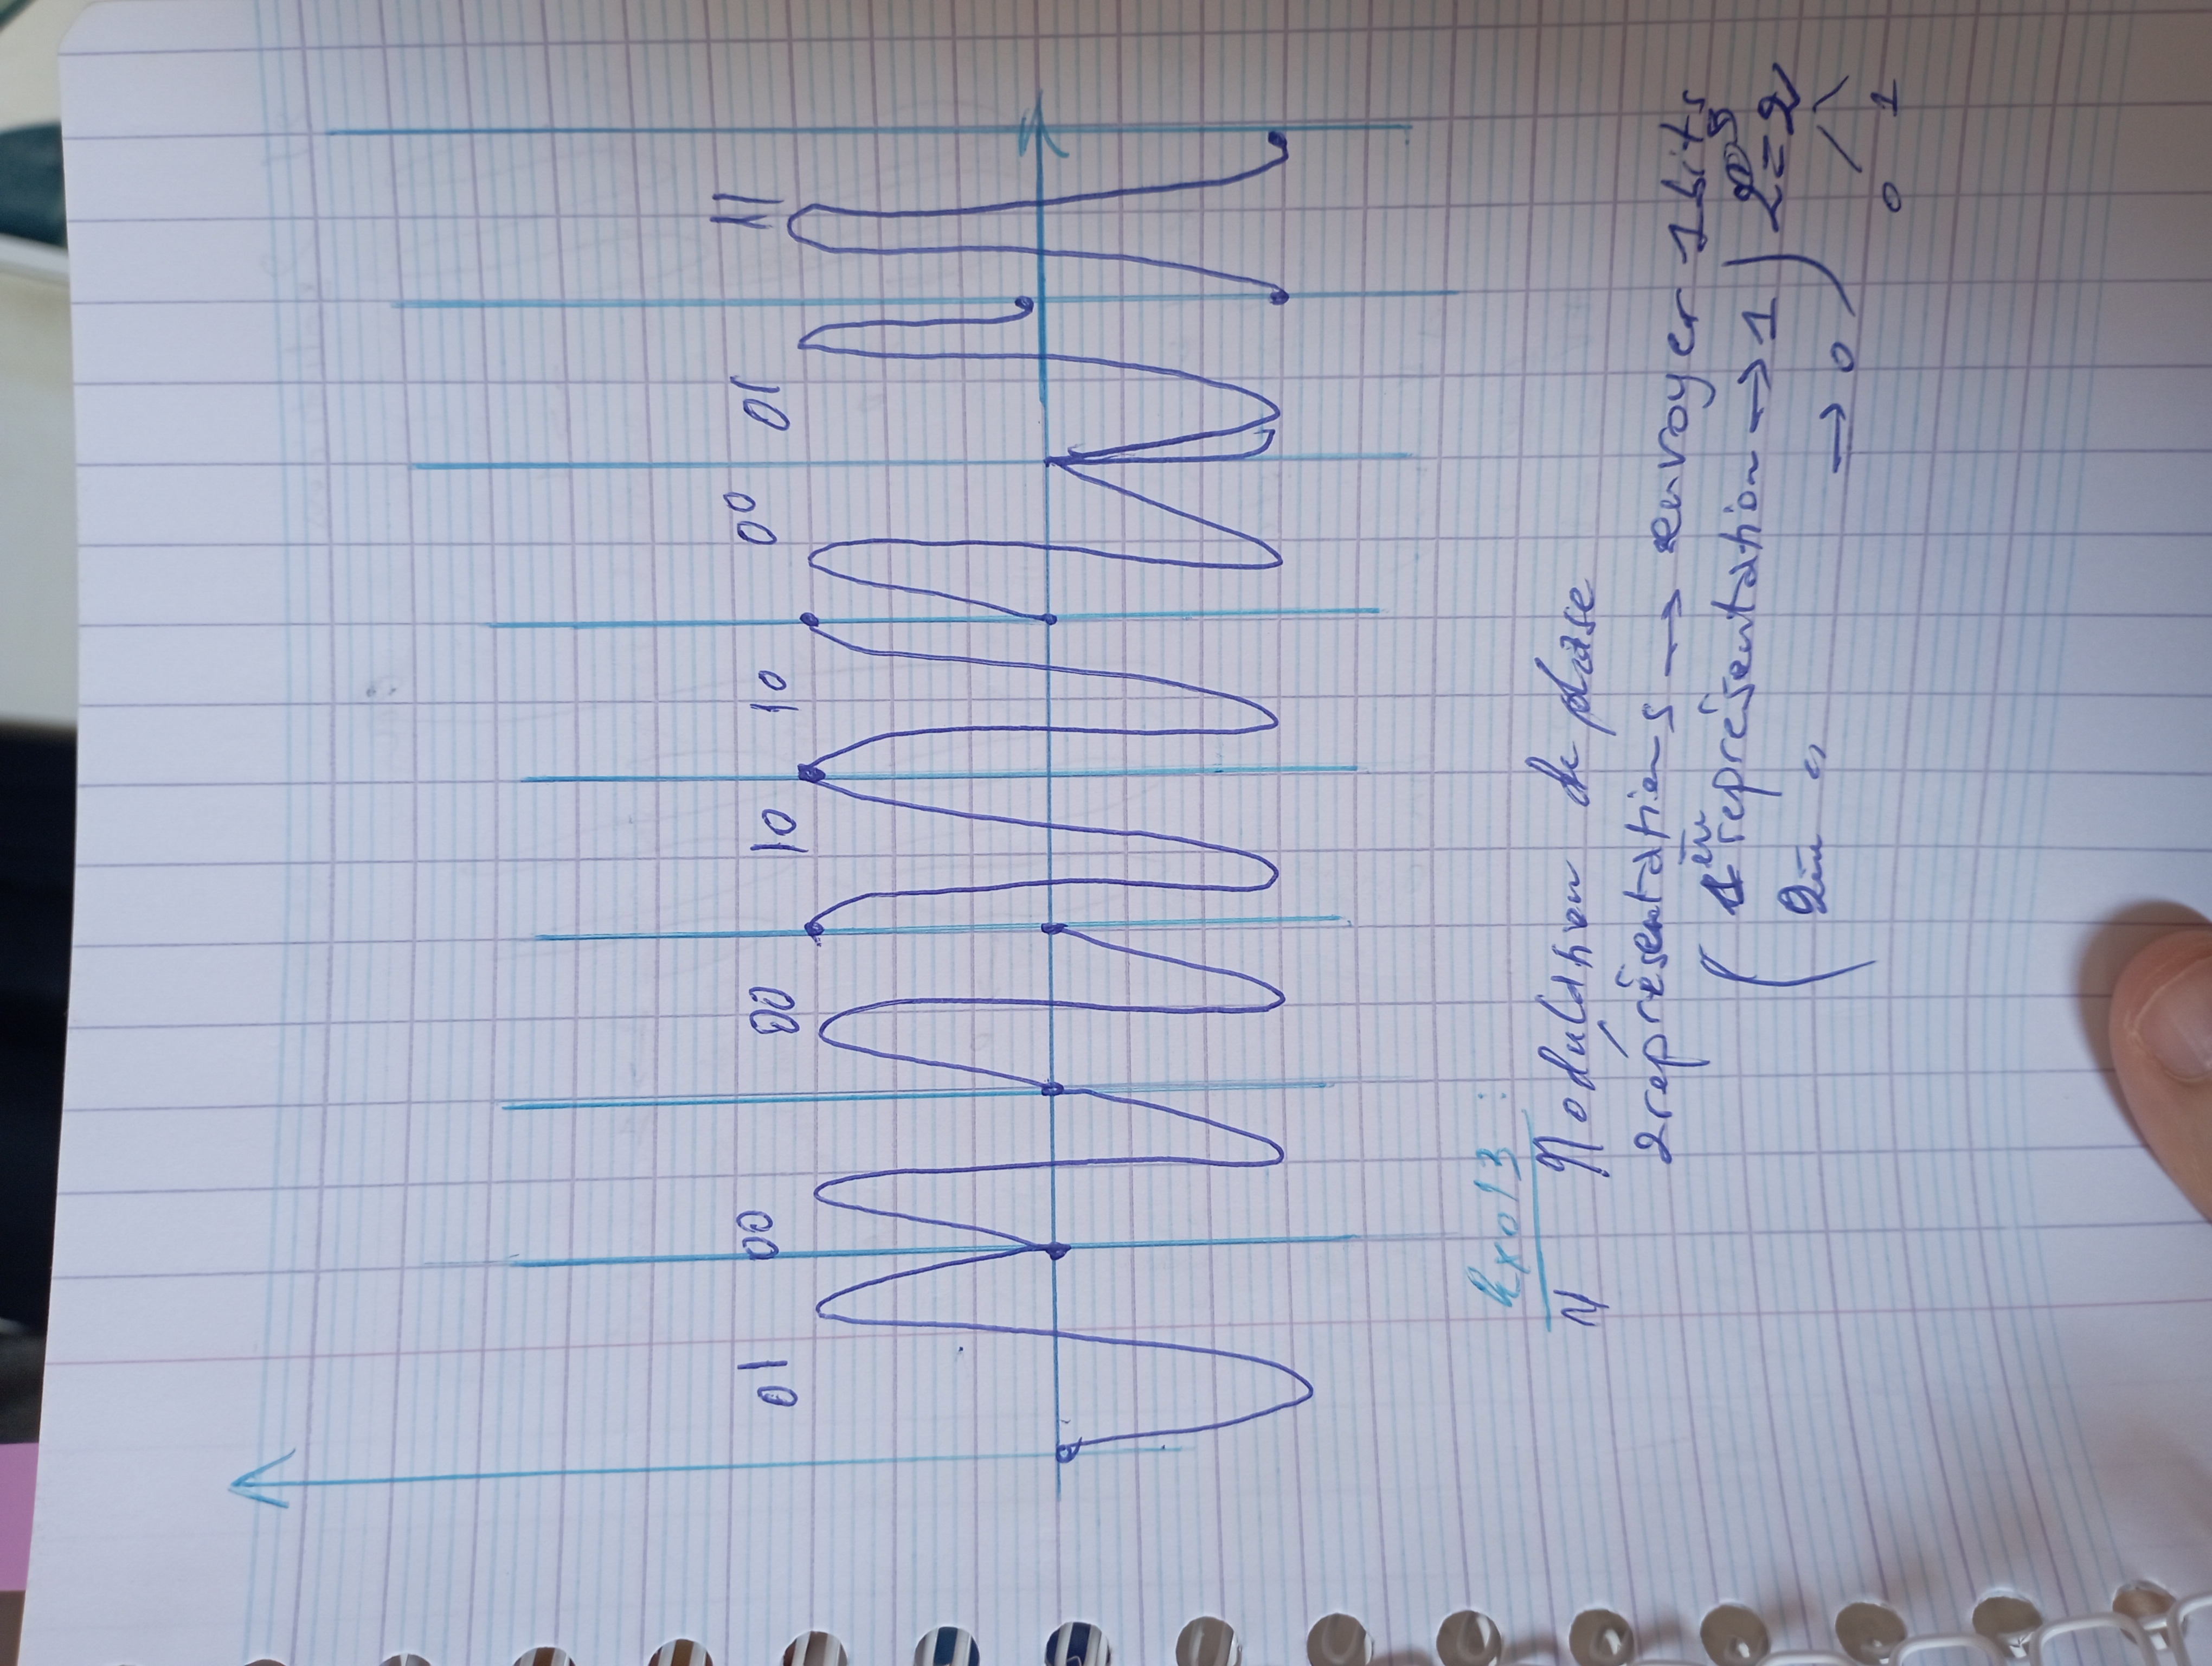 01 00 00 10 10 00 01 11
Exo 13 :
1/ Modulation de phase
2 représentations → envoyer 1 bits
( 1ère représentation → 1 )
2ème " → 0
2 = 2
0 1